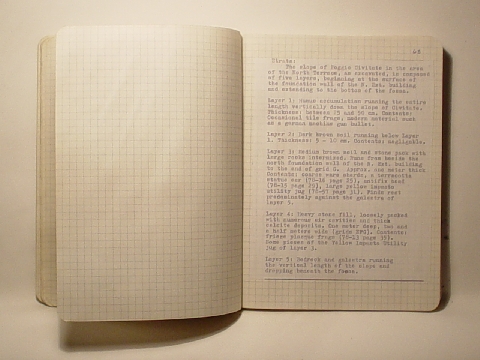 Strata:
The slope of Poggio Civitate in the area
of the North Terrace, as excavated, is composed
of five layers, beginning at the surface of
the foundation wall of the N. Ext. building
and extending to the bottom of the fossa.
Layer 1: Humus accumulation running the entire
length vertically down the slope of
Thickness: between 25 and cm. Contents:
Occasional tile frags, modern material such
as a german machine gun bullet.
Layer 2: Dark brown soil running below Layer
1. Thickness: 5 - 10 cm. Contents: negligible.
Layer 3: Medium brown soil and stone pack with
large roots intermixed. Runs from beside the
north foundation wall of the N. Ext. building
to the end of grid G. Approx. one meter thick
Contents: coarse ware sherds, a terracotta
statue ear page antefix head
page large yellow impasto
utility jug page Finds rest
predominately against the galestra of
layer 5.
Layer 4: Heavy stone fill, loosely packed
with numerous air cavities and thick
calcite deposits. One meter deep, two and
a half meters wide Contents:
frieze plaque frags page
Some pieces of the Yellow Impasto Utility
jug of layer 3.
Layer 5: Bedrock and galestra running
the vertical length of the slope and
dropping beneath the fossa.